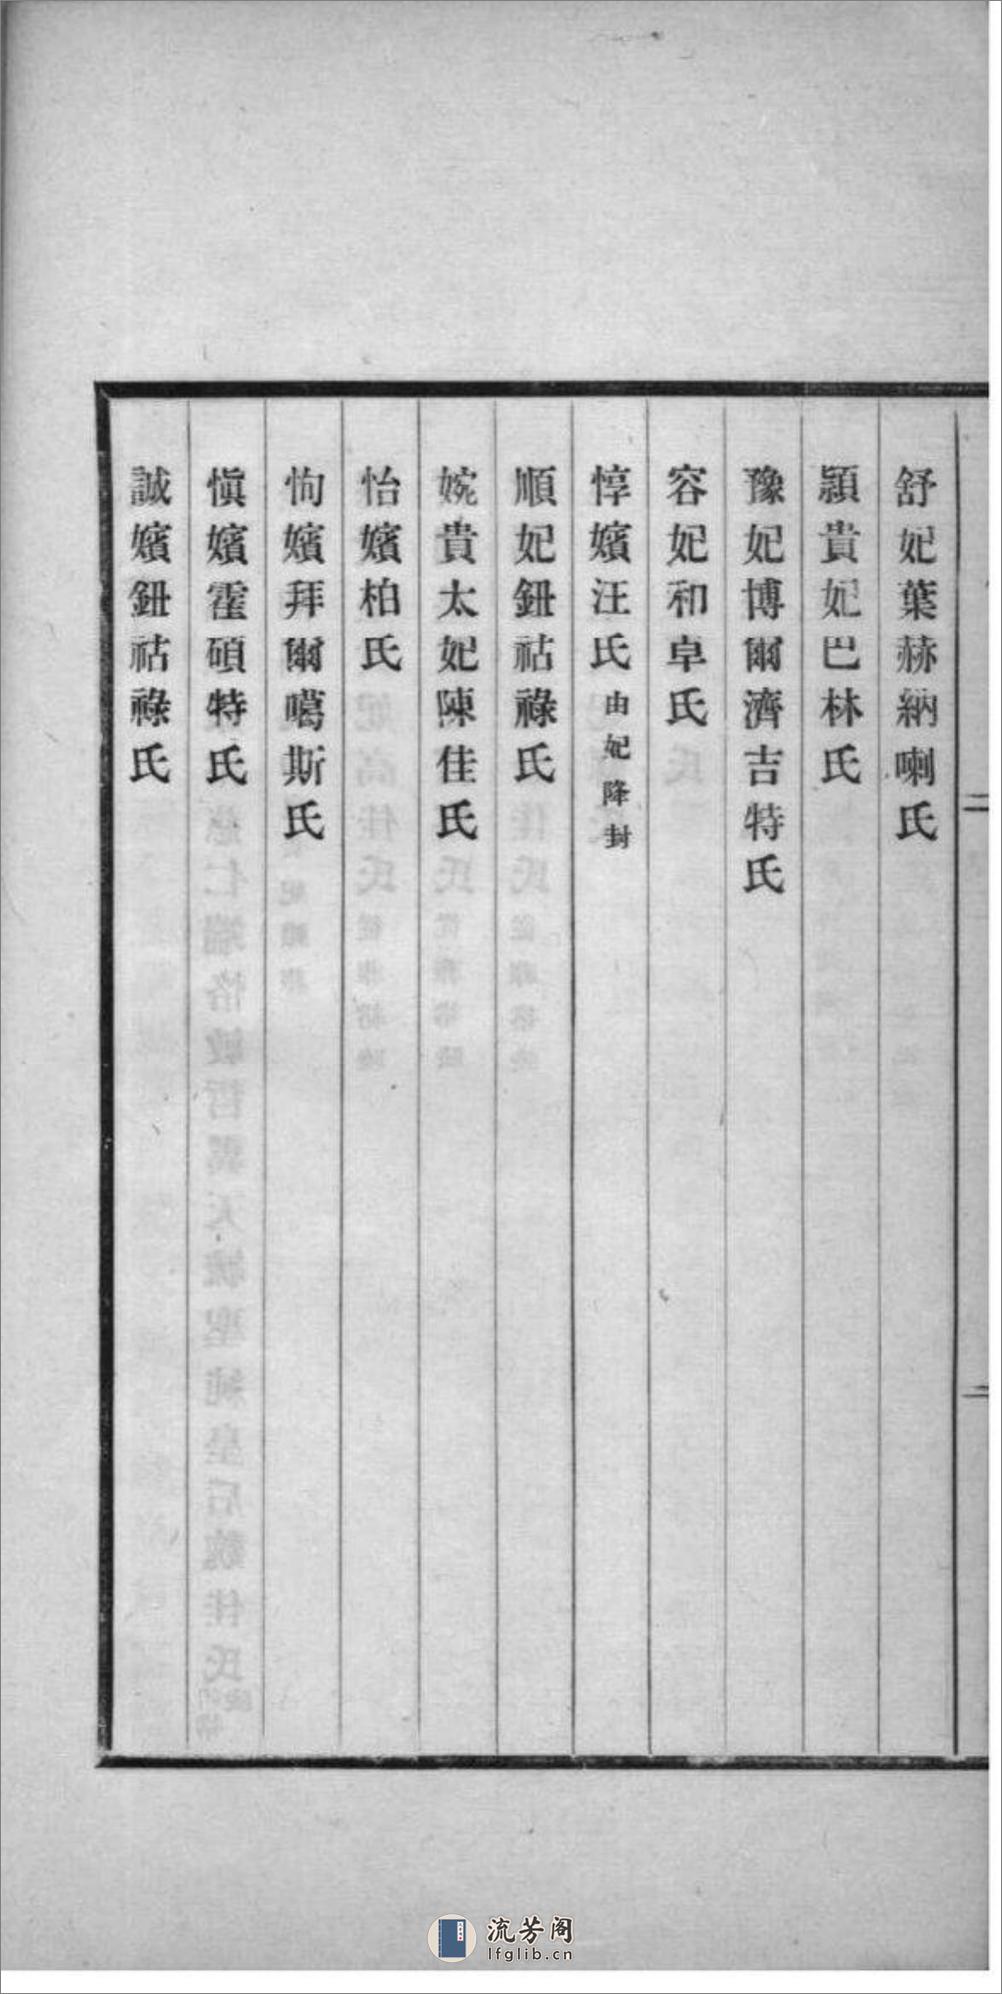 舒妃葉赫納喇氏
穎貴妃巴林氏
豫妃博爾濟吉特氏
容妃和卓氏
惇嬪汪氏由妃降封
順妃鈕祜祿氏
婉貴太妃陳佳氏
怡嬪柏氏
恂嬪拜爾噶斯氏
愼嬪霍碩特氏
誠嬪鈕祜祿氏
流芳阁
lfglib.cn